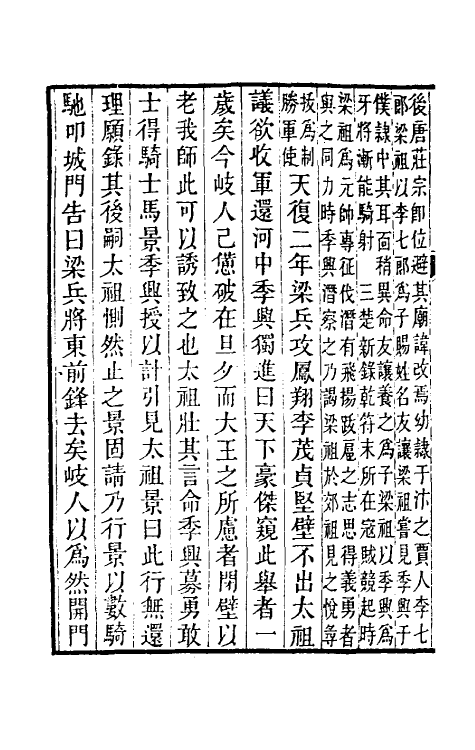 後唐莊宗卽位避其廟諱改焉幼隸于汴之賈人李七
郎梁祖以李七郎爲子賜姓名友讓梁祖嘗見季興于
僕隸中其耳面稍異命友讓養之爲子梁祖以季興爲
牙將漸能騎射　三楚新錄乾符末所在寇賊競起時
梁祖爲元帥專征伐潛有飛揚跋扈之志思得義勇者
與之同力時季興潛察之乃謁梁祖於郊祖見之悅尋
拔爲制
勝軍使
天復二年梁兵攻鳳翔李茂貞堅壁不出太祖
議欲收軍還河中季興獨進曰天下豪傑窺此舉者一
歲矣今岐人已憊破在旦夕而大王之所慮者閉壁以
老我師此可以誘致之也太祖壯其言命季興募勇敢
士得騎士馬景季興授以計引見太祖景曰此行無還
理願錄其後嗣太祖惻然止之景固請乃行景以數騎
馳叩城門告曰梁兵將東前鋒去矣岐人以爲然開門